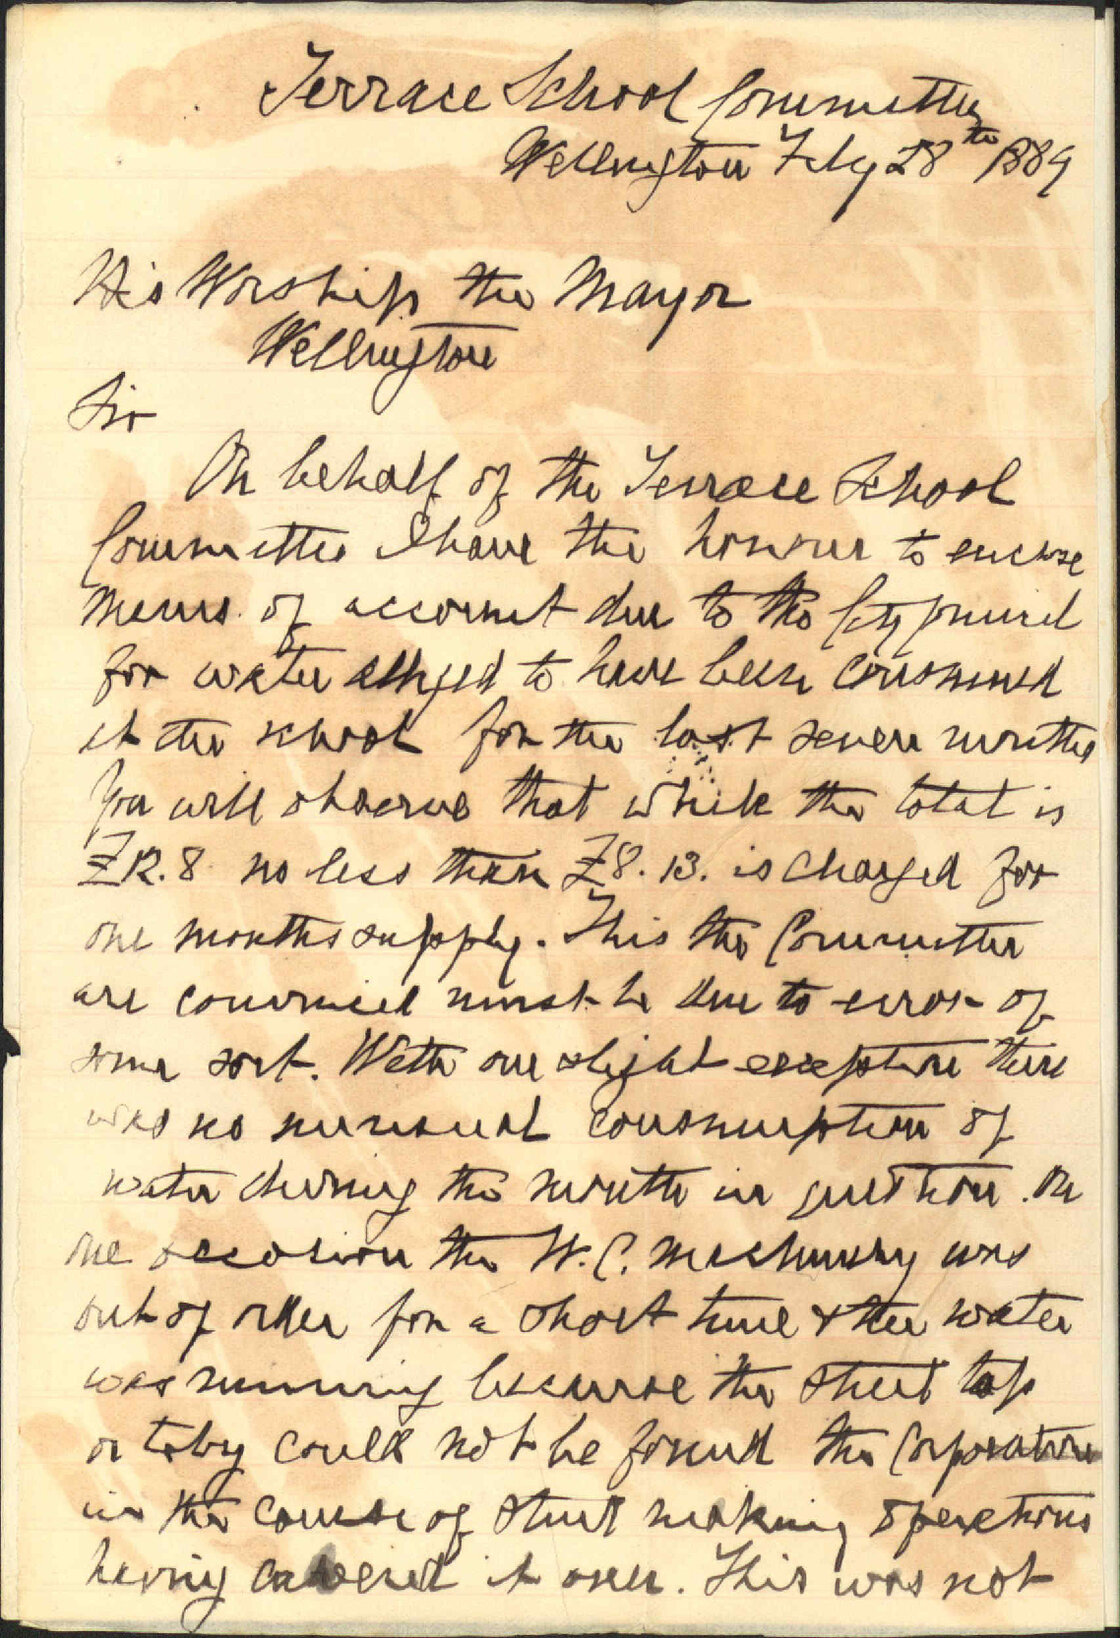 Terrace School Committee
Wellington Feby 28th 1889
His Worship the Mayor
Wellington
Sir
On behalf of the Terrace School
Committee I have the honour to enclose
memo. of account due to the City Council
for water alleged to have been consumed
at the school for the last seven months
You will observe that while the total is
£12.8 no less than £8.13. is charged for
one months supply. This the Committee
are convinced must be due to error of
some sort. With one slight exception there
was no unusual consumption of
water during the month in question. On
one occasion the W.C. machinery was
out of order for a short time & the water
was running because the street tap
or toby could not be found the Corporation
in the course of street making operations
having covered it over. This was not